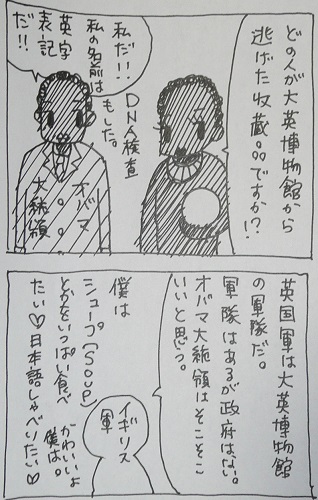 どの人が大英博物館から
逃げた収蔵品ですか!?
DNA検査
もした。
私だ!!
私の名前は
英字
表記
だ!!
オバマ
大統領
英国軍は大英博物館
の軍隊だ。
軍隊はあるが政府はない。
オバマ大統領はそこそこ
いいと思う。
イギリス
軍
僕は
シュープ(SOUP)
とかをいっぱい食べ
たい♡日本語しゃべりたい♡
かわいいよ
僕は。